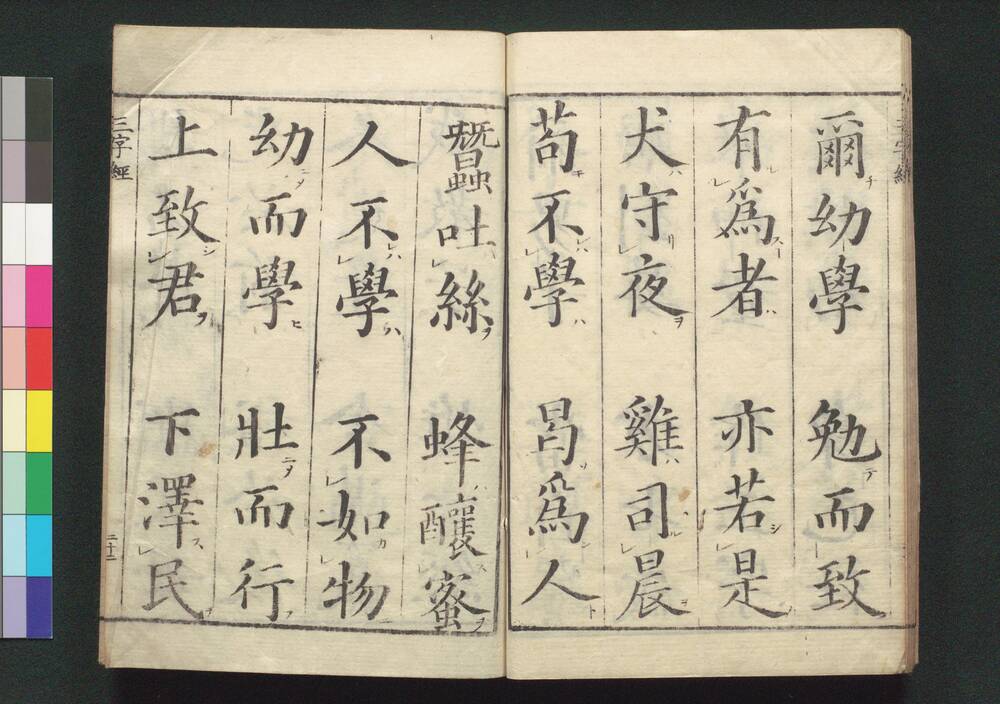 爾幼學 勉而致
有爲者 亦若是
犬守夜 雞司晨
茍不學 曷爲人
蠶吐絲 蜂釀蜜
人不學 不如物
幼而學 壯而行
上致君 下澤民
三字經
二十二